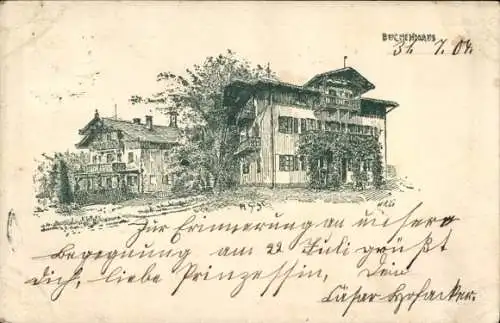 BUCHEHMAES
31. 7. 04.
Zur Erinnerung an unsere
Begegnung am 22 Juli grüßt
dich, liebe Prinzessin, Dein
Cäsar Hofacker.